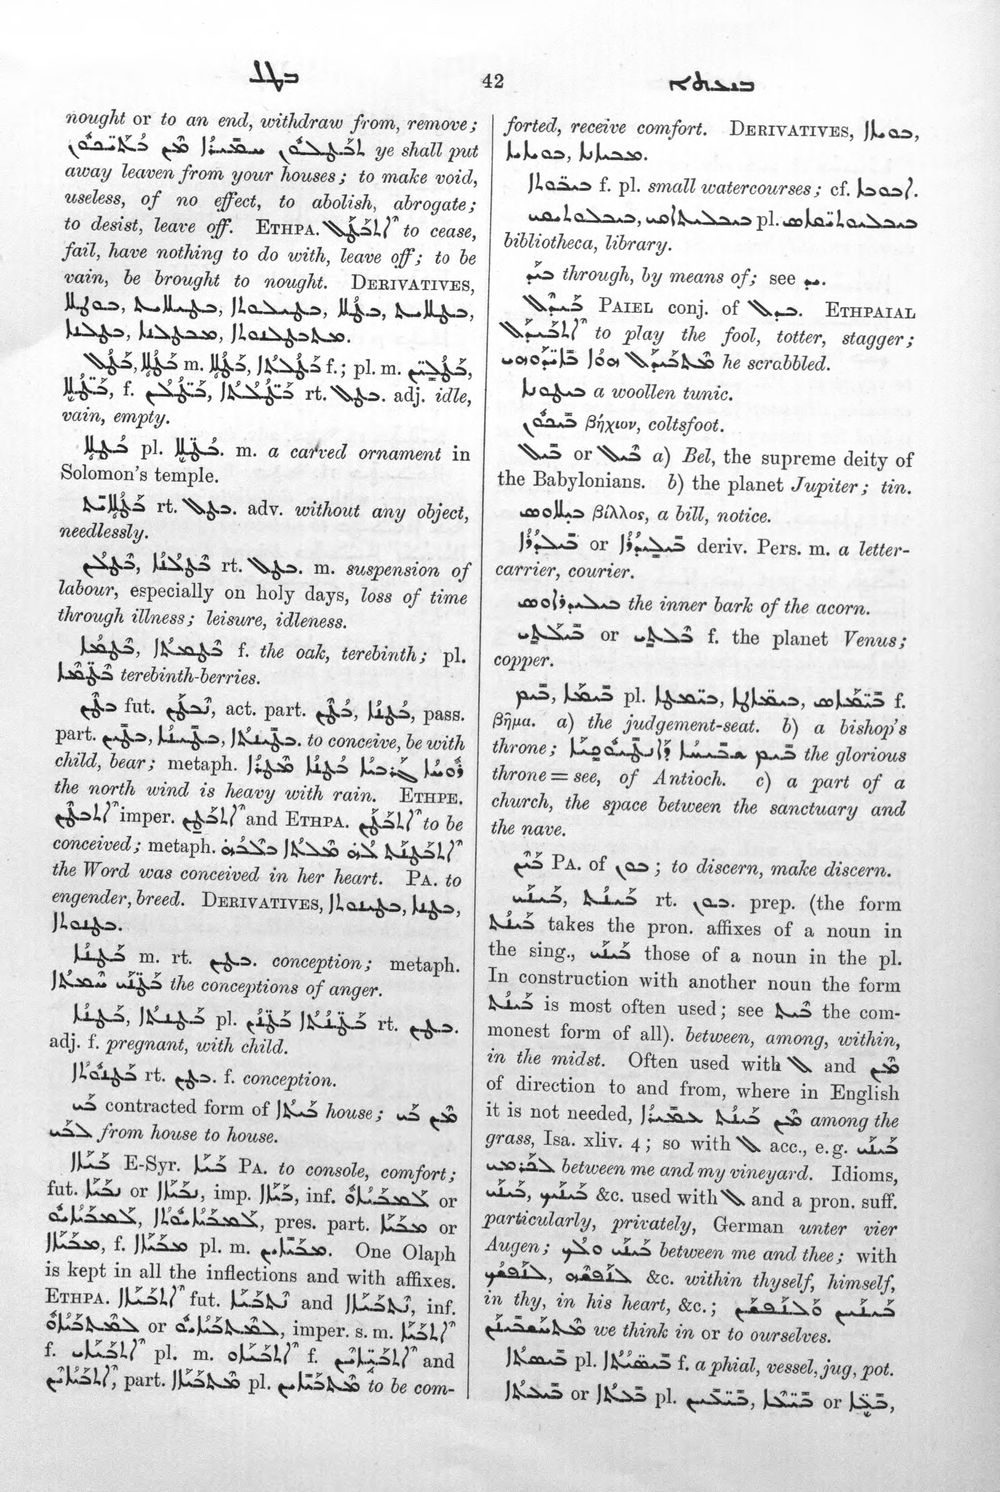 ܒܛܠ 42 ܒܝܢܬ
nought or to an end, withdraw from, remove;
ܬܒܛܠܘܢ ܚܡܝܪܐ ܡܢ ܒܬܝܟܘܢ ye shall put
away leaven from your houses; to make void,
useless, of no effect, to abolish, abrogate;
to desist, leave off. ETHPA. ܐܬܒܛܠ to cease,
fail, have nothing to do with, leave off; to be
vain, be brought to nought. DERIVATIVES,
ܒܛܠܐܝܬ, ܒܛܠܐ, ܒܛܝܠܘܬܐ, ܒܛܝܠܐܝܬ, ܒܘܛܠܐ
ܒܛܠܢܐ, ܡܒܛܠܢܐ, ܡܬܒܛܠܢܘܬܐ.
ܒܛܠ, ܒܛܠܐ m. ܒܛܠܐ, ܒܛܠܬܐ f.; pl. m. ܒܛܠܝܢ,
ܒܛܠܐ, f. ܒܛܠܢ, ܒܛܠܬܐ rt. ܒܛܠ. adj. idle,
vain, empty.
ܒܛܠܐ pl. ܒܛܠܐ. m. a carved ornament in
Solomon's temple.
ܒܛܠܐܝܬ rt. ܒܛܠ. adv. without any object,
needlessly.
ܒܛܠܢ, ܒܛܠܢܐ rt. ܒܛܠ. m. suspension of
labour, especially on holy days, loss of time
through illness; leisure, idleness.
ܒܛܡܐ, ܒܛܡܬܐ f. the oak, terebinth; pl.
ܒܛܡܐ terebinth-berries.
ܒܛܢ fut. ܢܒܛܢ, act. part. ܒܛܢ, ܒܛܢܐ, pass.
part. ܒܛܝܢ, ܒܛܝܢܐ, ܒܛܝܢܬܐ. to conceive, be with
child, bear; metaph. ܪܘܚܐ ܓܪܒܝܐ ܒܛܢܐ ܡܛܪܐ
the north wind is heavy with rain. ETHPE.
ܐܬܒܛܢ imper. ܐܬܒܛܢ and ETHPA. ܐܬܒܛܢ to be
conceived; metaph. ܐܬܒܛܢܬ ܒܗ ܡܠܬܐ ܒܠܒܗ
the Word was conceived in her heart. PA. to
engender, breed. DERIVATIVES, ܒܛܢܐ, ܒܛܝܢܘܬܐ,
ܒܛܢܘܬܐ.
ܒܛܢܐ m. rt. ܒܛܢ. conception; metaph.
ܒܛܢܝ ܚܡܬܐ the conceptions of anger.
ܒܛܢܐ, ܒܛܢܬܐ pl. ܒܛܢܢ, ܒܛܢܬܐ rt. ܒܛܢ.
adj. f. pregnant, with child.
ܒܛܢܘܬܐ rt. ܒܛܢ. f. conception.
ܒܝ contracted form of ܒܝܬܐ house; ܡܢ ܒܝ
ܠܒܝ from house to house.
ܒܝܐܐ E-Syr. ܒܝܐ PA. to console, comfort;
fut. ܢܒܝܐ or ܢܒܝܐܐ, imp. ܒܝܐܐ, inf. ܠܡܒܝܐܘ or
pres. part. ܡܒܝܐ or
ܡܒܝܐܐ, f. ܡܒܝܐܐ pl. m. One Olaph
is kept in all the inflections and with affixes.
ETHPA. ܐܬܒܝܐܐ fut. ܢܬܒܝܐ and ܢܬܒܝܐܐ, inf.
ܠܡܬܒܝܐܘ or imper. s. m. ܐܬܒܝܐ
f. ܐܬܒܝܐܝ pl. m. ܐܬܒܝܐܘ f. and
part. ܡܬܒܝܐܐ pl. ܡܬܒܝܐܝܢ to be com-
forted, receive comfort. DERIVATIVES, ܒܘܝܐܐ,
ܡܒܝܐܢܐ.
f. pl. small watercourses; cf.
pl.
bibliotheca, library.
ܒܝܕ through, by means of; see ܝܕ.
ܒܝܕܠ PAIEL conj. of ETHPAIAL
to play the fool, totter, stagger;
he scrabbled.
a woollen tunic.
ܒܝܟܘܢ βήχιον, coltsfoot.
ܒܝܠ or ܒܝܠ a) Bel, the supreme deity of
the Babylonians. b) the planet Jupiter; tin.
ܒܝܠܐܘܣ βίλλος, a bill, notice.
ܒܝܠܕܪܐ or ܒܝܠܝܕܪܐ deriv. Pers. m. a letter-
carrier, courier.
the inner bark of the acorn.
ܒܝܠܬܝ or ܒܠܬܝ f. the planet Venus;
copper.
ܒܝܡ, ܒܝܡܐ pl. ܒܝܡܣ, f.
βῆμα. a) the judgement-seat. b) a bishop's
throne; ܒܝܡ ܫܒܝܚܐ ܕܐܢܛܝܘܟܝܐ the glorious
throne = see, of Antioch. c) a part of a
church, the space between the sanctuary and
the nave.
ܒܝܢ PA. of ܒܘܢ; to discern, make discern.
ܒܝܢܝ, ܒܝܢܬ rt. ܒܘܢ. prep. (the form
ܒܝܢܬ takes the pron. affixes of a noun in
the sing., ܒܝܢܝ those of a noun in the pl.
In construction with another noun the form
ܒܝܢܬ is most often used; see ܒܝܬ the com-
monest form of all). between, among, within,
in the midst. Often used with ܠ and ܡܢ
of direction to and from, where in English
it is not needed, ܡܢ ܒܝܢܬ ܥܡܝܪܐ among the
grass, Isa. xliv. 4; so with ܠ acc., e.g. ܒܝܢܝ
ܠܟܪܡܝ between me and my vineyard. Idioms,
ܒܝܢܝ, ܒܝܢܝܟ &c. used with ܠ and a pron. suff.
particularly, privately, German unter vier
Augen; ܒܝܢܝ ܘܠܟ between me and thee; with
ܠܢܦܫܟ, ܠܢܦܫܗ &c. within thyself, himself,
in thy, in his heart, &c.; ܒܝܢܝܢ ܘܠܢܦܫܢ
ܡܬܚܫܒܝܢܢ we think in or to ourselves.
ܒܝܣܬܐ pl. f. a phial, vessel, jug, pot.
ܒܝܥܬܐ or ܒܥܬܐ pl. or